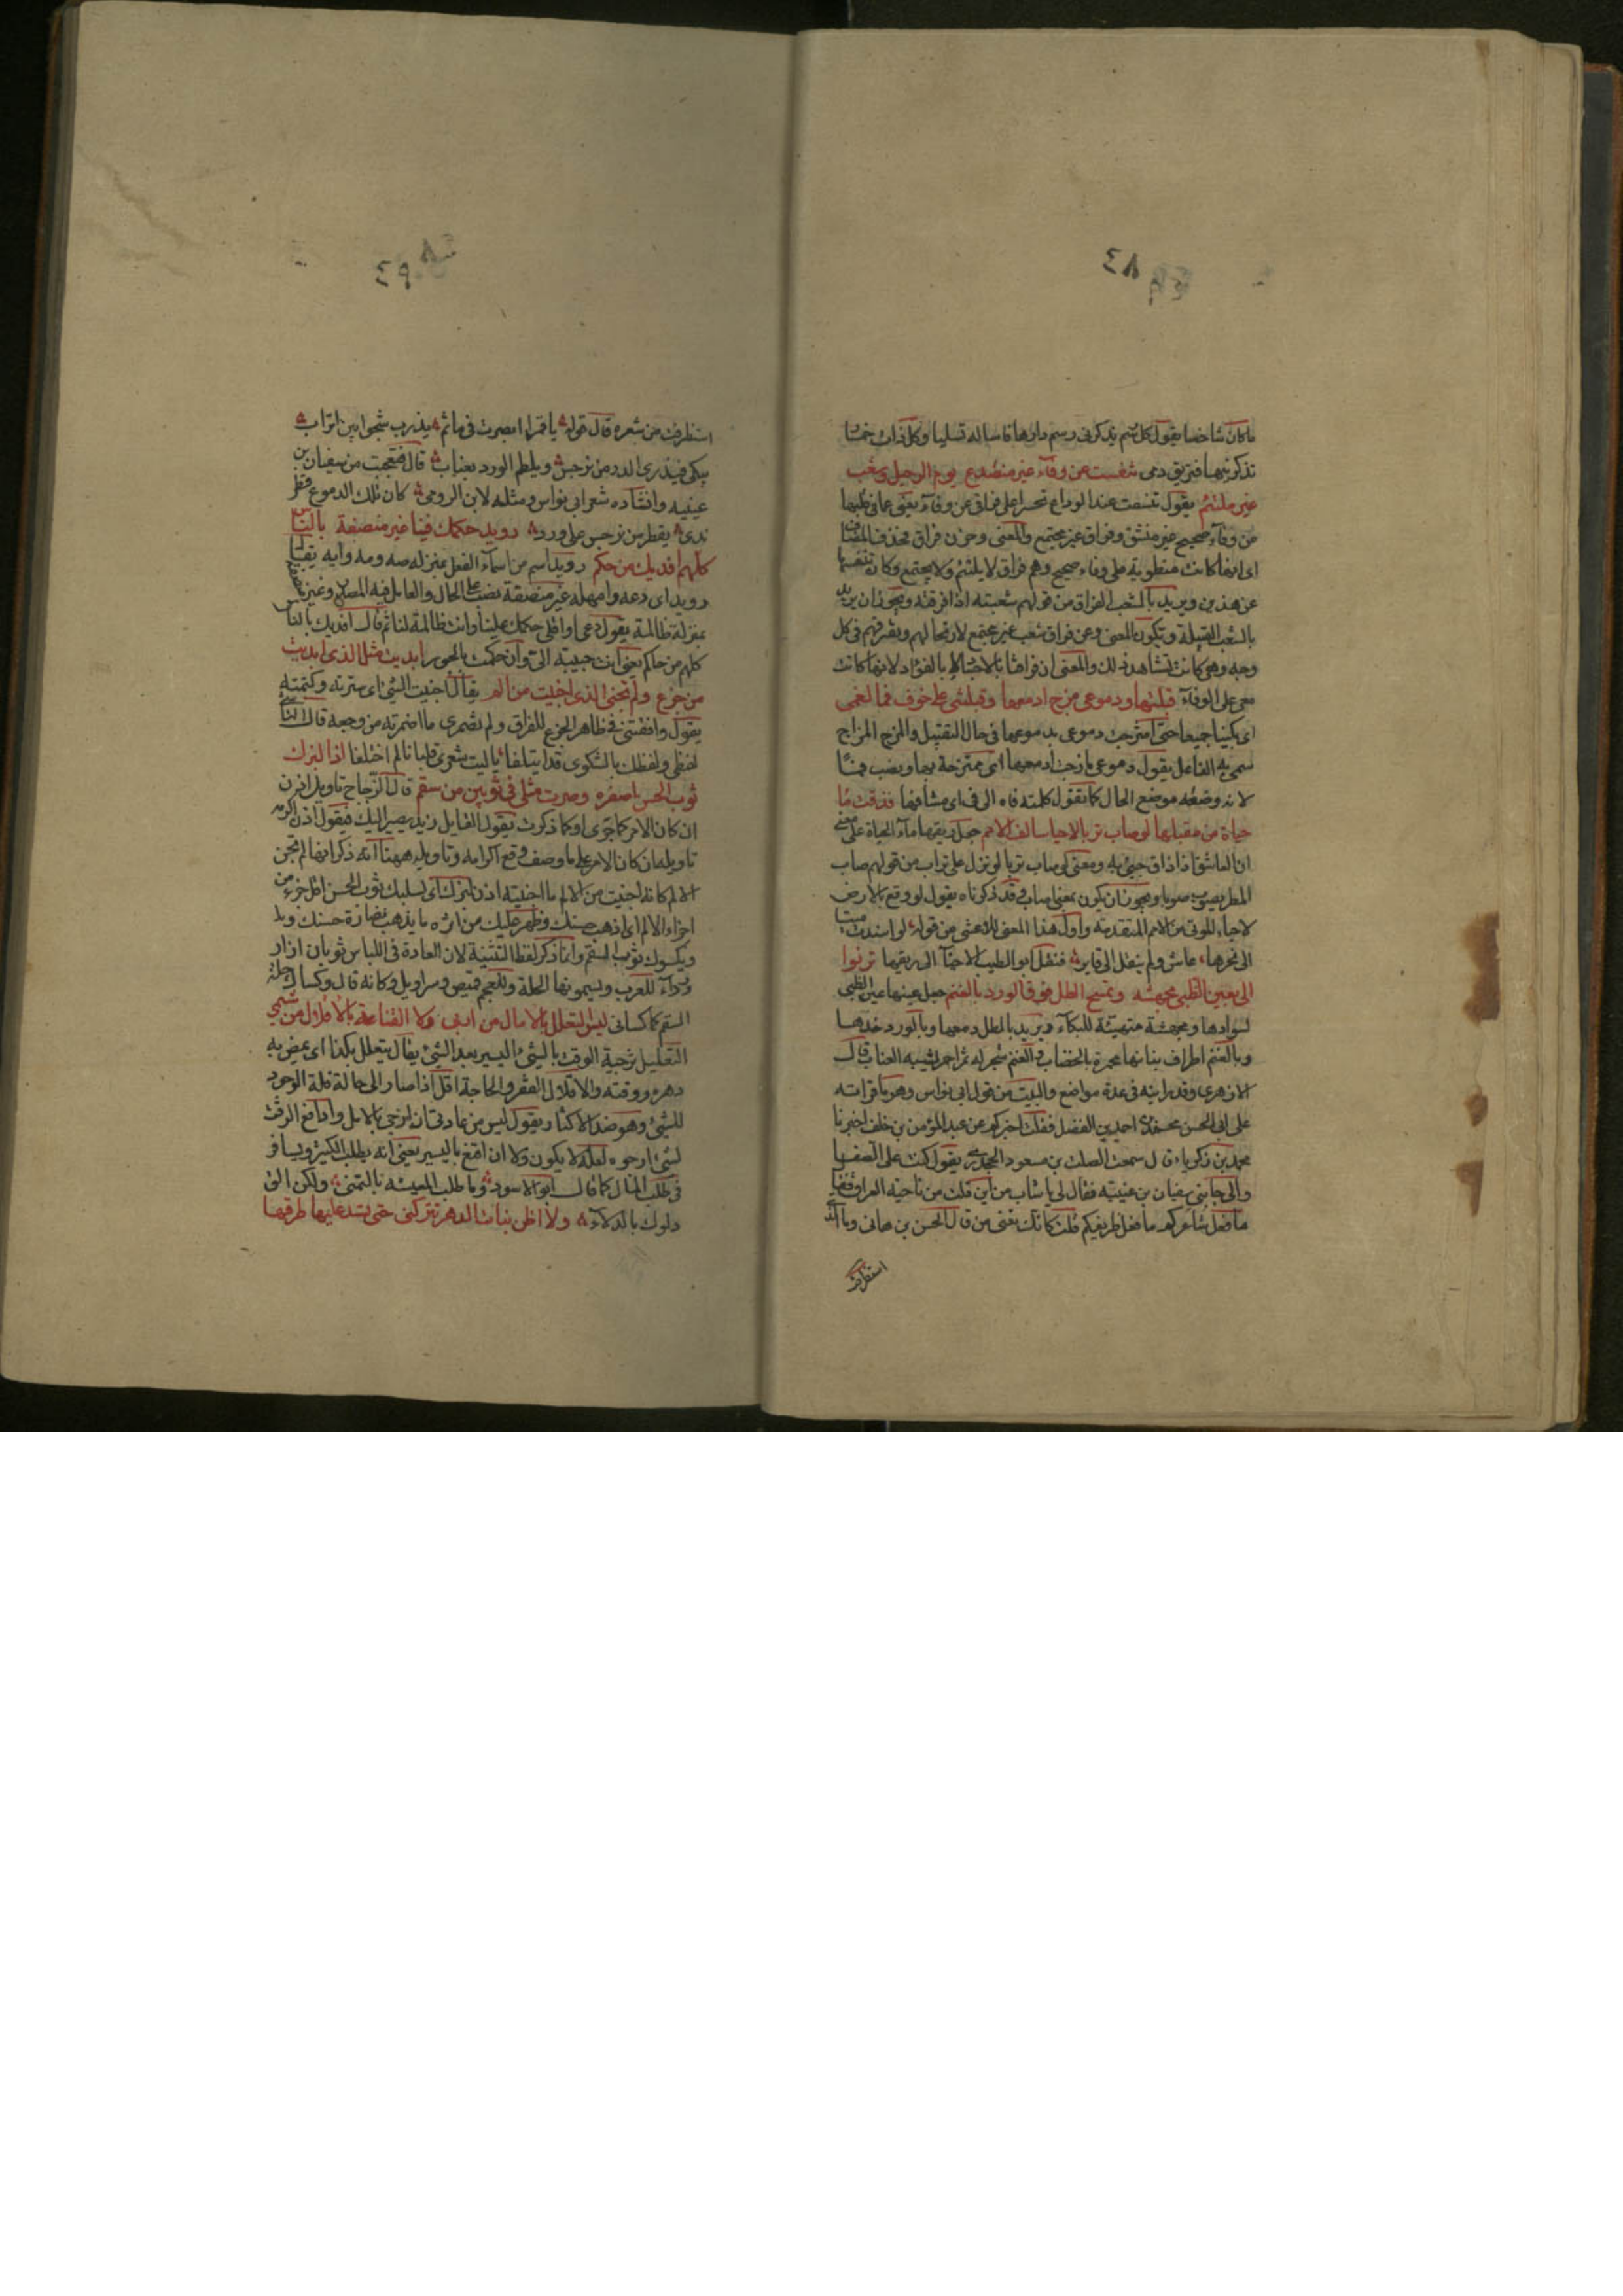 ٤٨
ماكان شاخصا يقول كل رسم يذكرنى رسم دارها فاساله تسليا وكل ذات خمار
تذكرنيها فتريق دمى تنفست عن وفآء غير منصدع يوم الرحيل وشعب
غير ملتئم يقول تنفست عند الوداع تحسرا على فراقى عن وفآء يعنى عما فى قلبها
من وفآء صحيح غير منشق وفراق غير مجتمع والمعنى وحزن فراق فحذف المضاف
اى انها كانت منطوية على وفاء صحيح وهم فراق لا يلتئم ولا يجتمع وكان تنفسها
عن هذين ويريد بالشعب الفراق من قولهم شعبته اذا فرقته ويجوز ان يريد
بالشعب القبيلة ويكون المعنى وعن فراق شعب غير مجتمع لارتحالهم وتفرقهم فى كل
وجه وهى كانت تشاهد ذلك والمعنى ان فراقنا بالاجسام لا بالفؤاد لانها كانت
معى على الوفآء قبلتها ودموعى مزج ادمعها وقبلتنى على خوف فما لفمى
اى بكينا جميعا حتى امتزجت دموعى بدموعها فى حال التقبيل والمزج المزاج
سمى به الفاعل يقول دموعى مازجت ادمعها اى ممتزجة بها ونصب فما
لانه وضعه موضع الحال كما تقول كلمته فاه الى فى اى مشافها فذقت مآ
حياة من مقبلها لو صاب تربا لاحيا سالف الامم جعل ريقها مآء الحياة على معنى
ان العاشق اذا ذاق حيى به ومعنى لو صاب تربا لو نزل على تراب من قولهم صاب
المطر يصوب صوبا ويجوز ان يكون بمعنى اصاب وقد ذكرناه يقول لو وقع بالارض
لاحياء الموتى من الامم المتقدمة واول هذا المعنى للاعشى من قوله لو اسندت ميتا
الى نحرها عاش ولم ينقل الى قابر فنقل ابو الطيب الاحيآ الى ريقها ترنوا
الى بعين الظبى مجهشة وتمسح الطل فوق الورد بالعنم جعل عينها عين الظبى
لسوادها ومجهشة متهيئة للبكآء ويريد بالطل دمعها وبالورد خدها
وبالعنم اطراف بنانها محمرة بالخضاب والعنم شجر له ثمر احمر يشبه العناب قال
الازهرى وقد رايته فى عدة مواضع والبيت من قول ابى نواس وهو ما قراته
على ابى الحسن محمد بن احمد بن الفضل فقلت اخبركم عن عبد المؤمن بن خلف اخبرنا
محمد بن زكرياء قال سمعت الصلت بن مسعود الجحدرى يقول كنت على الصفا
والى جانبى سفيان بن عيينة فقال لى يا شاب من اين قلت من ناحية العراق فقال
ما فعل شاعركم ما فعل ظريفكم قلت كانك تعنى من قال الحسن بن هانى وما الذى
استظرفت
٤٩
استظرفت من شعره قال قوله يا قمرا ابصرت فى ماتم يندب شجوا بين اتراب
يبكى فيذرى الدر من نرجس ويلطم الورد بعناب قال فتعجبت من سفيان بن
عيينه وانشاده شعر ابى نواس ومثله لابن الرومى كان تلك الدموع قطر
ندى يقطر من نرجس على ورد رويد حكمك فينا غير منصفة بالناس
كلهم افديك من حكم رويد اسم من اسمآء الفعل بمنزله صه ومه وايه يقال
رويد اى دعه وامهله غير منصفة نصب على الحال والعامل فيه المصدر وغير منصفة
بمنزلة ظالمة يقول دعى واقلى حكمك علينا وانت ظالمة لنا ثم قال افديك بالناس
كلهم من حاكم يعنى انت حبيبة الى وان حكمت بالجور ابديت مثل الذى ابديت
من جزع ولم تجنى الذى اجنيت من الم يقال اجنيت الشئ اى سترته وكتمته
يقول وافقتنى فى ظاهر الجزع للفراق ولم تضمرى ما اضمرته من وجعه قال الناشئ
لفظى ولفظك بالشكوى قد ايتلفا يا ليت شعرى فقلبانا لم اختلفا اذا لبزك
ثوب الحسن اصغره وصرت مثلى فى ثوبين من سقم قال الزجاج تاويل اذن
ان كان الامر كما جرى او كما ذكرت يقول القايل زيد يصير اليك فيقول اذن اكرمه
تاويله ان كان الامر على ما وصف وقع اكرامه وتاويله ههنا انه ذكر انها لم تجن
الالم كانه اجنيت من الالم ما اخفيته اذن لبزك اى لسلبك ثوب الحسن اقل جزء من
اجزاء الالم اى اذهب حسنك وظهر عليك من اثره ما يذهب نضارة حسنك وبد
ويكسوك ثوب السقم وانما ذكر لفظ التثنية لان العادة فى اللباس ثوبان ازار
ورداء للعرب ويسمونها الحلة وللعجم قميص وسراويل وكانه قال وكساك حلة
السقم كما كسانى ليس التعلل بالامال من اربى ولا القناعة بالاقلال من شيمى
التعليل ترجية الوقت بالشئ اليسير بعد الشئ يقال يتعلل بكذا اى يمضى به
دهره ووقته والاقلال الفقر والحاجة اقل اذا صار الى حالة قلة الوجود
للشئ وهو ضد الاكثار يقول ليس من عادتى ان ازجى بالامل وادافع الوقت
لشئ ارجوه لعله لا يكون ولا ان اقنع باليسير يعنى انه يطلب الكثير ويسافر
فى طلب المال كما قال ابو الاسود وما طلب المعيشه بالتمنى ولكن الق
دلوك بالدلآء ولا اظن بنات الدهر تتركنى حتى تسد عليها طرقها